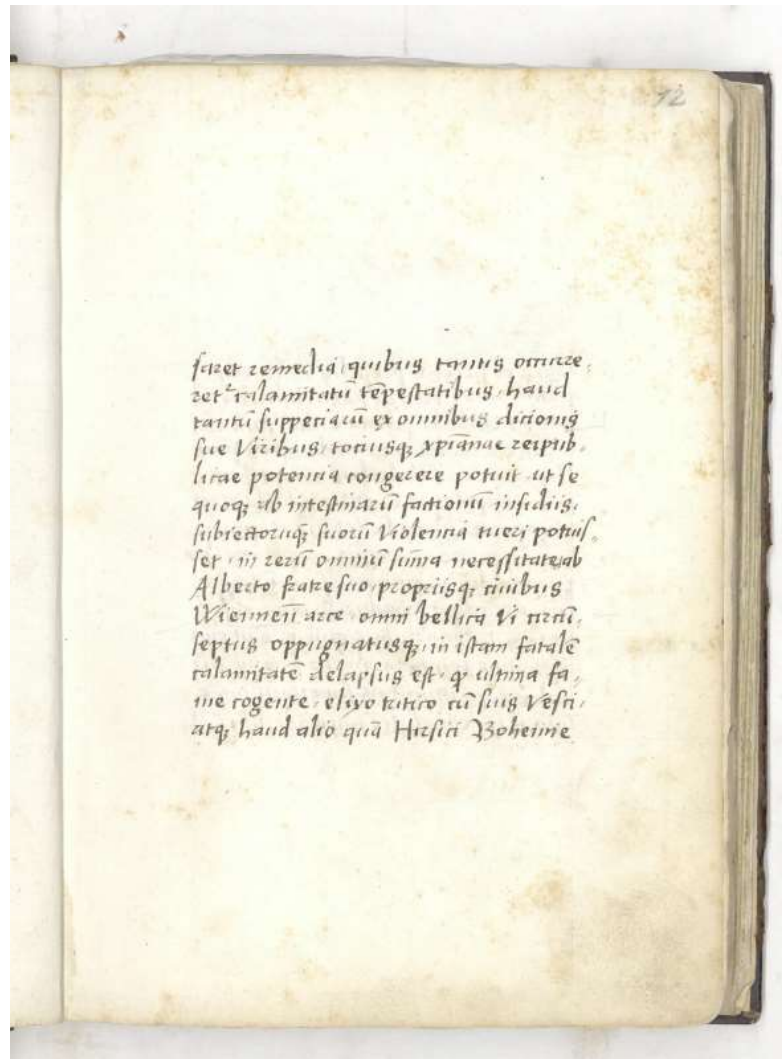 12
saret remedia, quibus tantis occurre,
ret calamitatū tēpestatibus, haud
tantū suppeciarū ex omnibus dicionis
sue Viribus, tociusq; xpiānae reipub,
licae potencia congerere potuit, ut se
quoq; ab intestinarū factionū insidiis,
subiectorūq; suorū Violencia tueri potuis,
set, in rerū omniū sūma necessitate, ab
Alberto fratre suo, propriisq; ciuibus
Wiennen̄ arce, omni bellica Vi circū,
septus oppugnatusq;, in istam fatalē
calamitatē delapsus est, ꝙ ultima fa,
me cogente, elixo tritico cū suis Vesci,
atq; haud alio quā Hirsici Bohemie